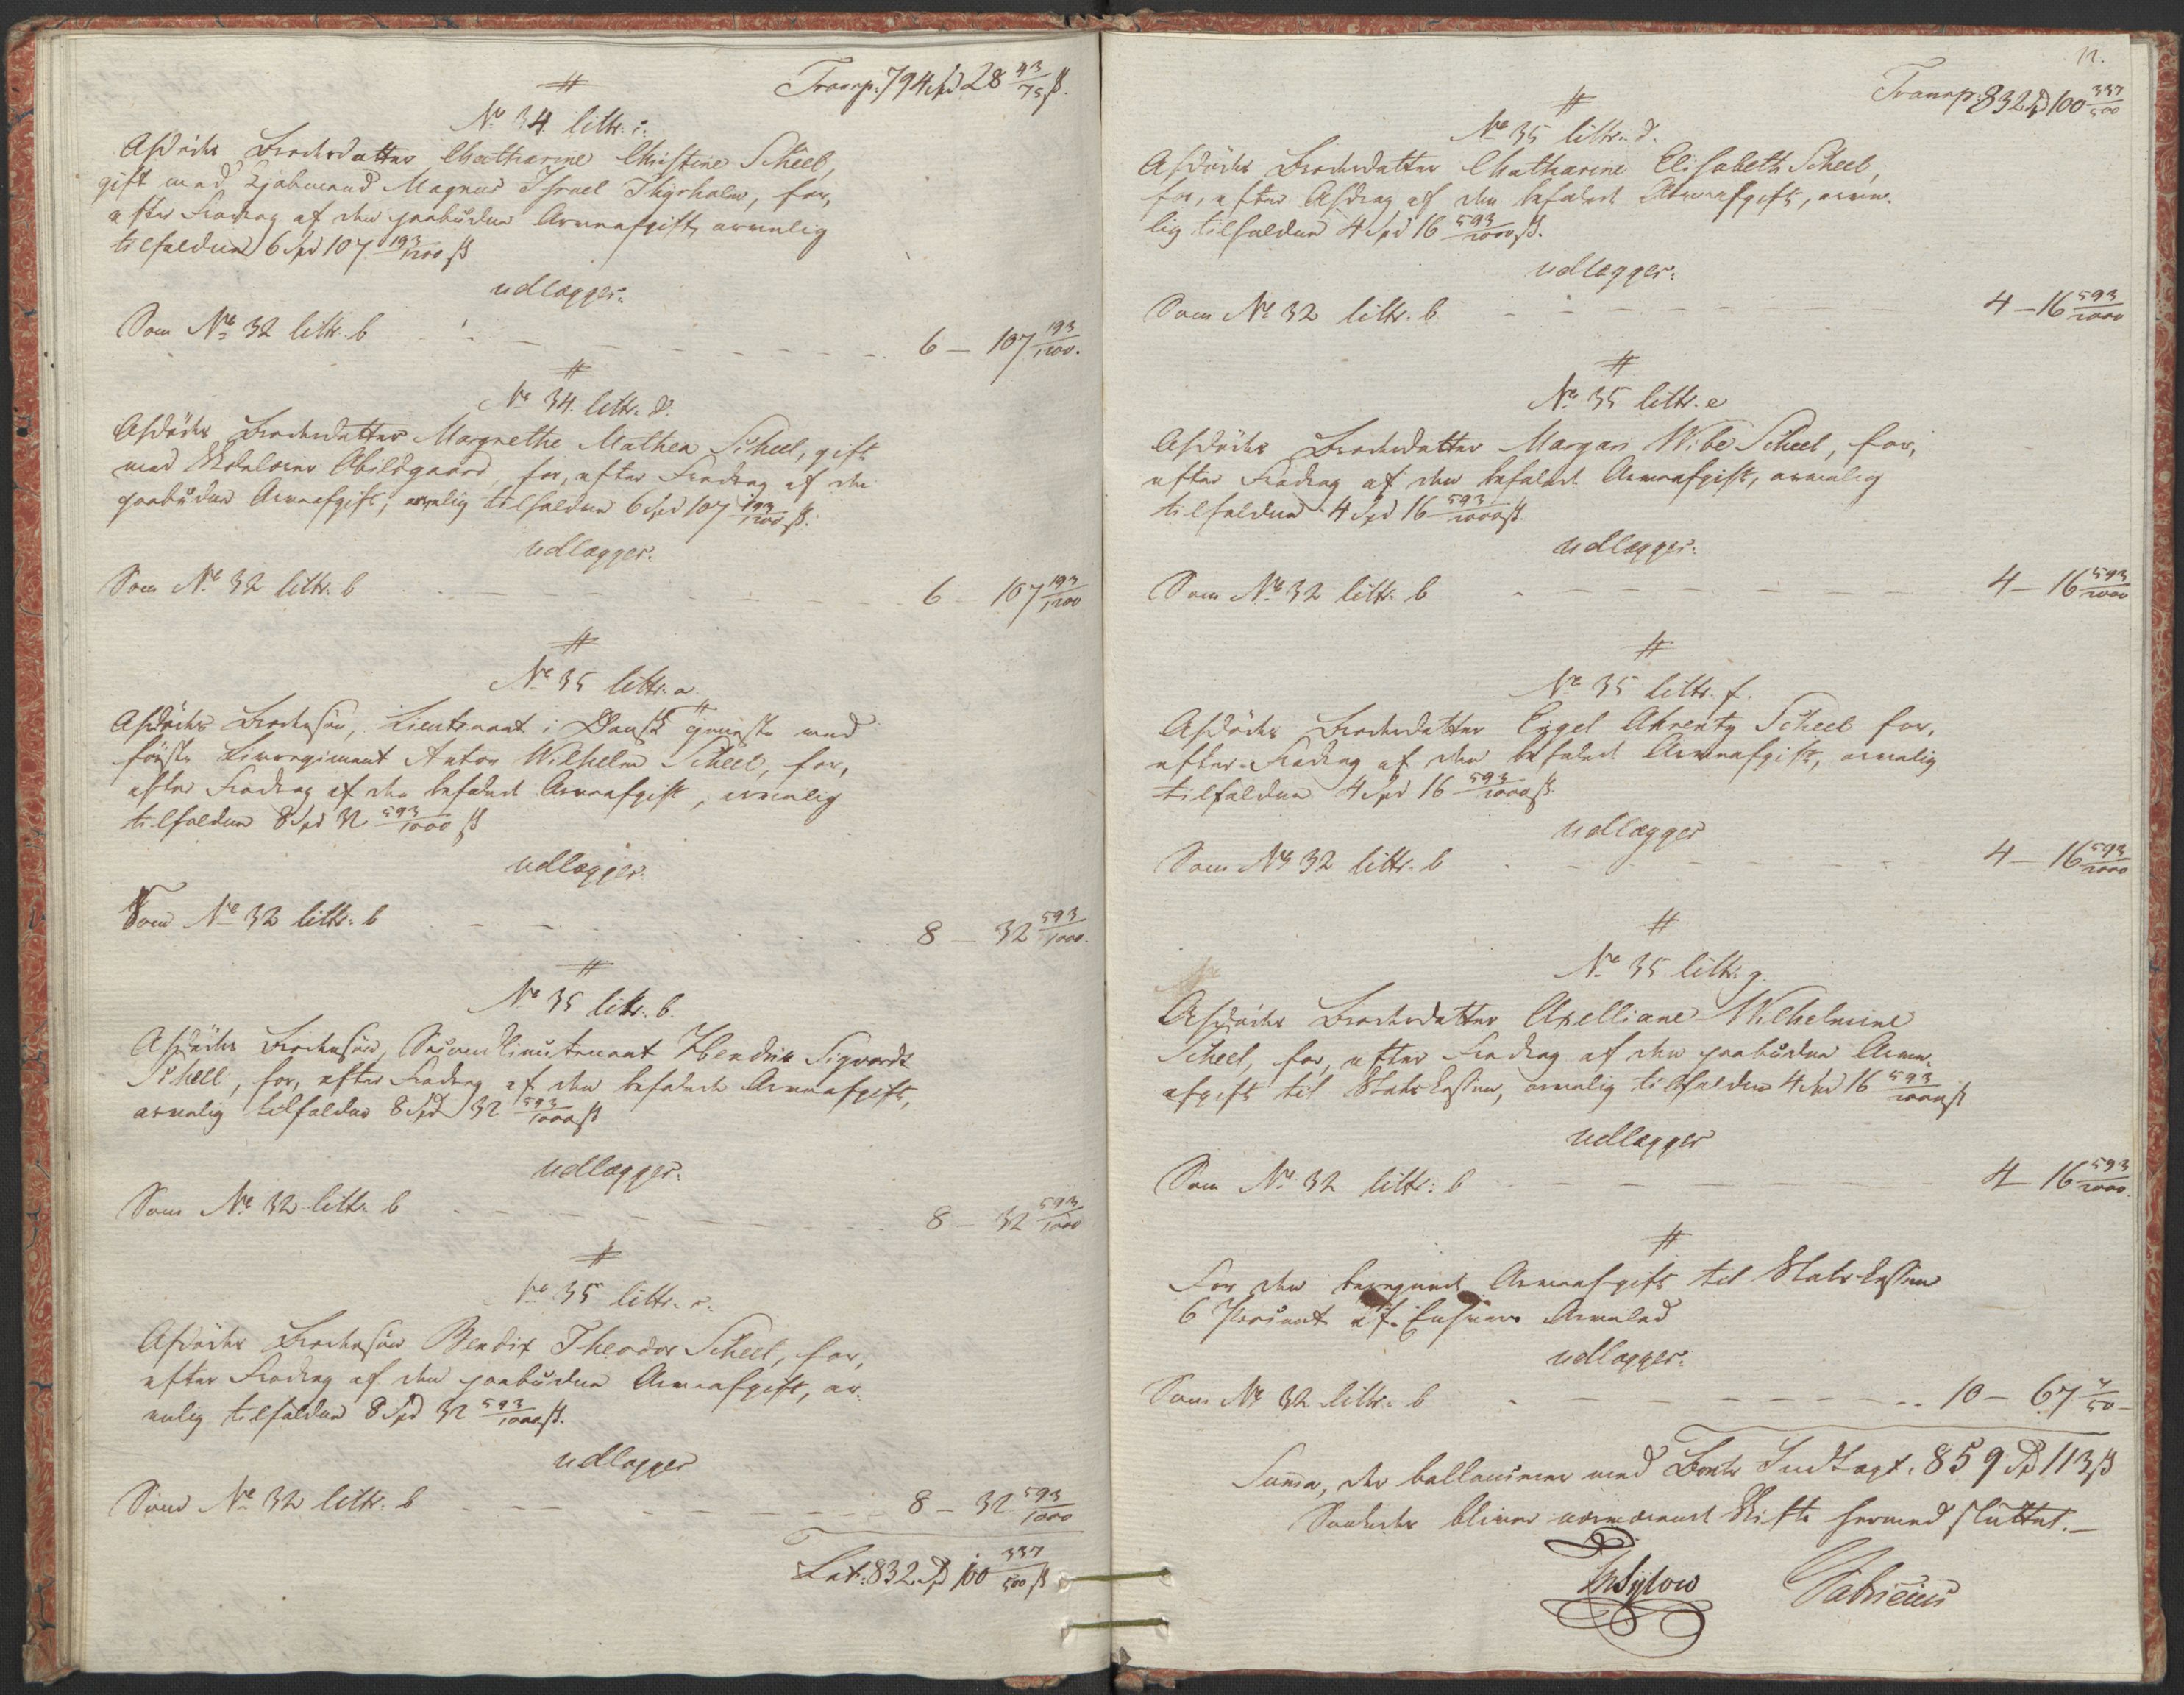 Transp: 794 Spd 28 43/75 ß.
#
No 34. littr. c.
Afdødes Broderdatter Chatharine Christine Scheel,
gift med Kjøbmand Magnus Israel Thyrholm, for,
efter Fradrag af den paabudne Arveafgift, arvelig
tilfalden 6 Spd 107 193/1200 ß
udlægges:
Som No 32 littr. b - - - 6 - 107 193/1200.
#
No 34. littr. d.
Afdødes Broderdatter Margrethe Mathea Scheel, gift
med Abildgaard, for, efter Fradrag af den
paabudne Arveafgift, arvelig tilfalden 6 Spd 107 193/1200 ß.
udlægges:
Som No 32 littr. b - - - 6 - 107 193/1200
#
No 35 littr. a.
Afdødes Brodersøn, Lieutenant i Dansk Tjeneste ved
første Livregiment Anton Wilhelm Scheel, for,
efter Fradrag af den befalede Arveafgift, arvelig
tilfalden 8 Spd 32 593/1000 ß
udlægges:
Som No 32 littr. b - - - 8 - 32 593/1000.
#
No 35 littr. b.
Afdødes Brodersøn, Secondlieutenant Hendrik Sigvardt
Scheel, for, efter Fradrag af den befalede Arveafgift,
arvelig tilfalden 8 Spd 32 593/1000 ß
udlægges:
Som No 32 littr. b - - - 8 - 32 593/1000
#
No 35 littr. c.
Afdødes Brodersøn Bendix Theodor Scheel, for,
efter Fradrag af den paabudne Arveafgift, ar-
velig tilfalden 8 Spd 32 593/1000 ß.
udlægges
Som No 32 littr. b - - - 8 - 32 593/1000
Lat: 832 Spd 100 337/500 ß
12.
Transp: 832 Spd 100 337/500
#
No 35 littr. d.
Afdødes Broderdatter Chatharine Elisabeth Scheel,
for, efter Afdrag af den befalede Arveafgift, arve-
lig tilfalden 4 Spd 16 593/2000 ß.
udlægges:
Som No 32 littr. b - - - 4 - 16 593/2000
#
No 35 littr. e
Afdødes Broderdatter Margan Wibe Scheel, for,
efter Fradrag af den befalede Arveafgift, arvelig
tilfalden 4 Spd 16 593/2000 ß
udlægges:
Som No 32 littr. b - - - 4 - 16 593/2000
#
No 35 littr. f.
Afdødes Broderdatter Engel Ahrentz Scheel for,
efter Fradrag af den befalede Arveafgift, arvelig
tilfalden 4 Spd 16 593/2000 ß
udlægges
Som No 32 littr. b - - - 4 - 16 593/2000
#
No 35 littr. g.
Afdødes Broderdatter Axelliane Wilhelmine
Scheel, for, efter Fradrag af den paabudne Arve-
afgift til Statskassen, arvelig tilfalden 4 Spd 16 593/2000 ß
udlægges
Som No 32 littr. b - - - 4 - 16 593/2000.
#
For den beregnede Arveafgift til Statskassen
6 Procent af Enhvers Arvelod
udlægges:
Som No 32 littr. b - - - 10 - 67 7/50 -
Suma, der ballancerer med Boets Indtægt: 859 Spd 113 ß
Saaledes bliver nærværende Skifte hermed sluttet. -
Sylow Fabricius